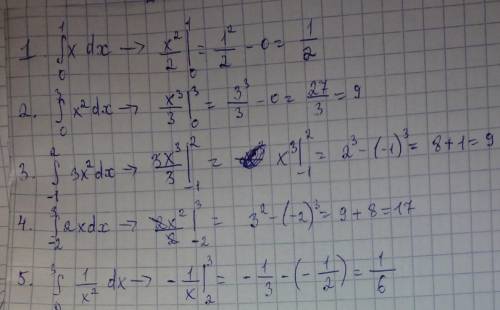 1. ∫₀¹ x dx → x²/2 |₀¹ = 1²/2 - 0 = 1/2
2. ∫₀³ x² dx → x³/3 |₀³ = 3³/3 - 0 = 27/3 = 9
3. ∫₋₁² 3x² dx → 3x³/3 |₋₁² = x³ |₋₁² = 2³ - (-1)³ = 8 + 1 = 9
4. ∫₋₂³ 2x dx → 2x²/2 |₋₂³ = 3² - (-2)³ = 9 + 8 = 17
5. ∫³ 1/x² dx → - 1/x |₂³ = - 1/3 - (- 1/2) = 1/6